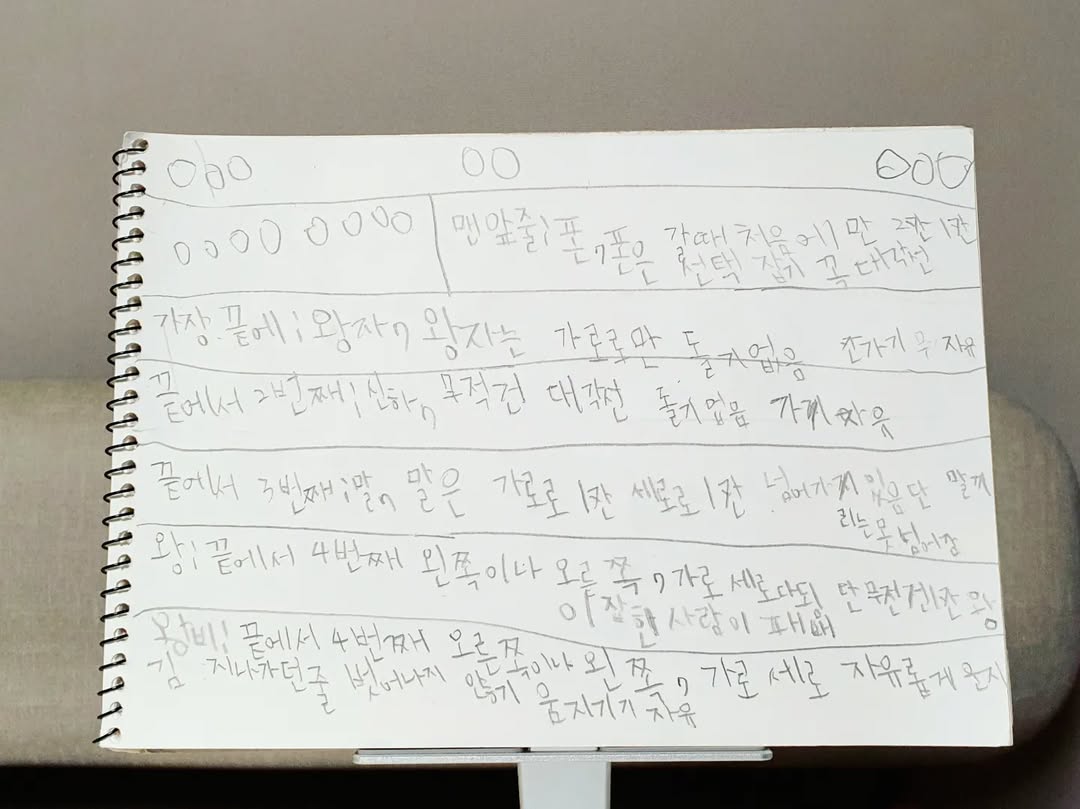 맨앞줄; 폰, 폰은 갈때 처음에만 2칸 1칸
선택 잡기 꼭 대각선
가장.끝에; 왕자, 왕자는 가로로만 돌기없음 칸가기 자유
끝에서 2번째; 신하, 무적건 대각선 돌기없음 가기 자유
끝에서 3번째; 말, 말은 가로로 1칸 세로로 1칸 넘어가기 있음 단 말끼
리는 못 넘어감
왕; 끝에서 4번째 왼쪽이나 오른쪽, 가로 세로 다되 단 무천건 1칸 왕
이 잡힌 사람이 패배
왕비; 끝에서 4번째 오른쪽이나 왼쪽, 가로 세로 자유롭게 움지
김 지나가던줄 벗어나지 않기 움지기기 자유